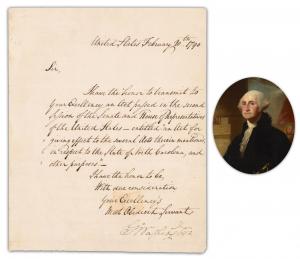 United States February 20th 1790
Sir,
I have the honor to transmit to
Your Excellency an Act passed in the second
session of the Senate and House of Representatives
of the United States — entitled an Act for
giving effect to the several Acts therein mentioned,
in respect to the State of North Carolina, and
other purposes".
I have the honor to be,
With due consideration
Your Excellency's
Most Obedient Servant
G Washington